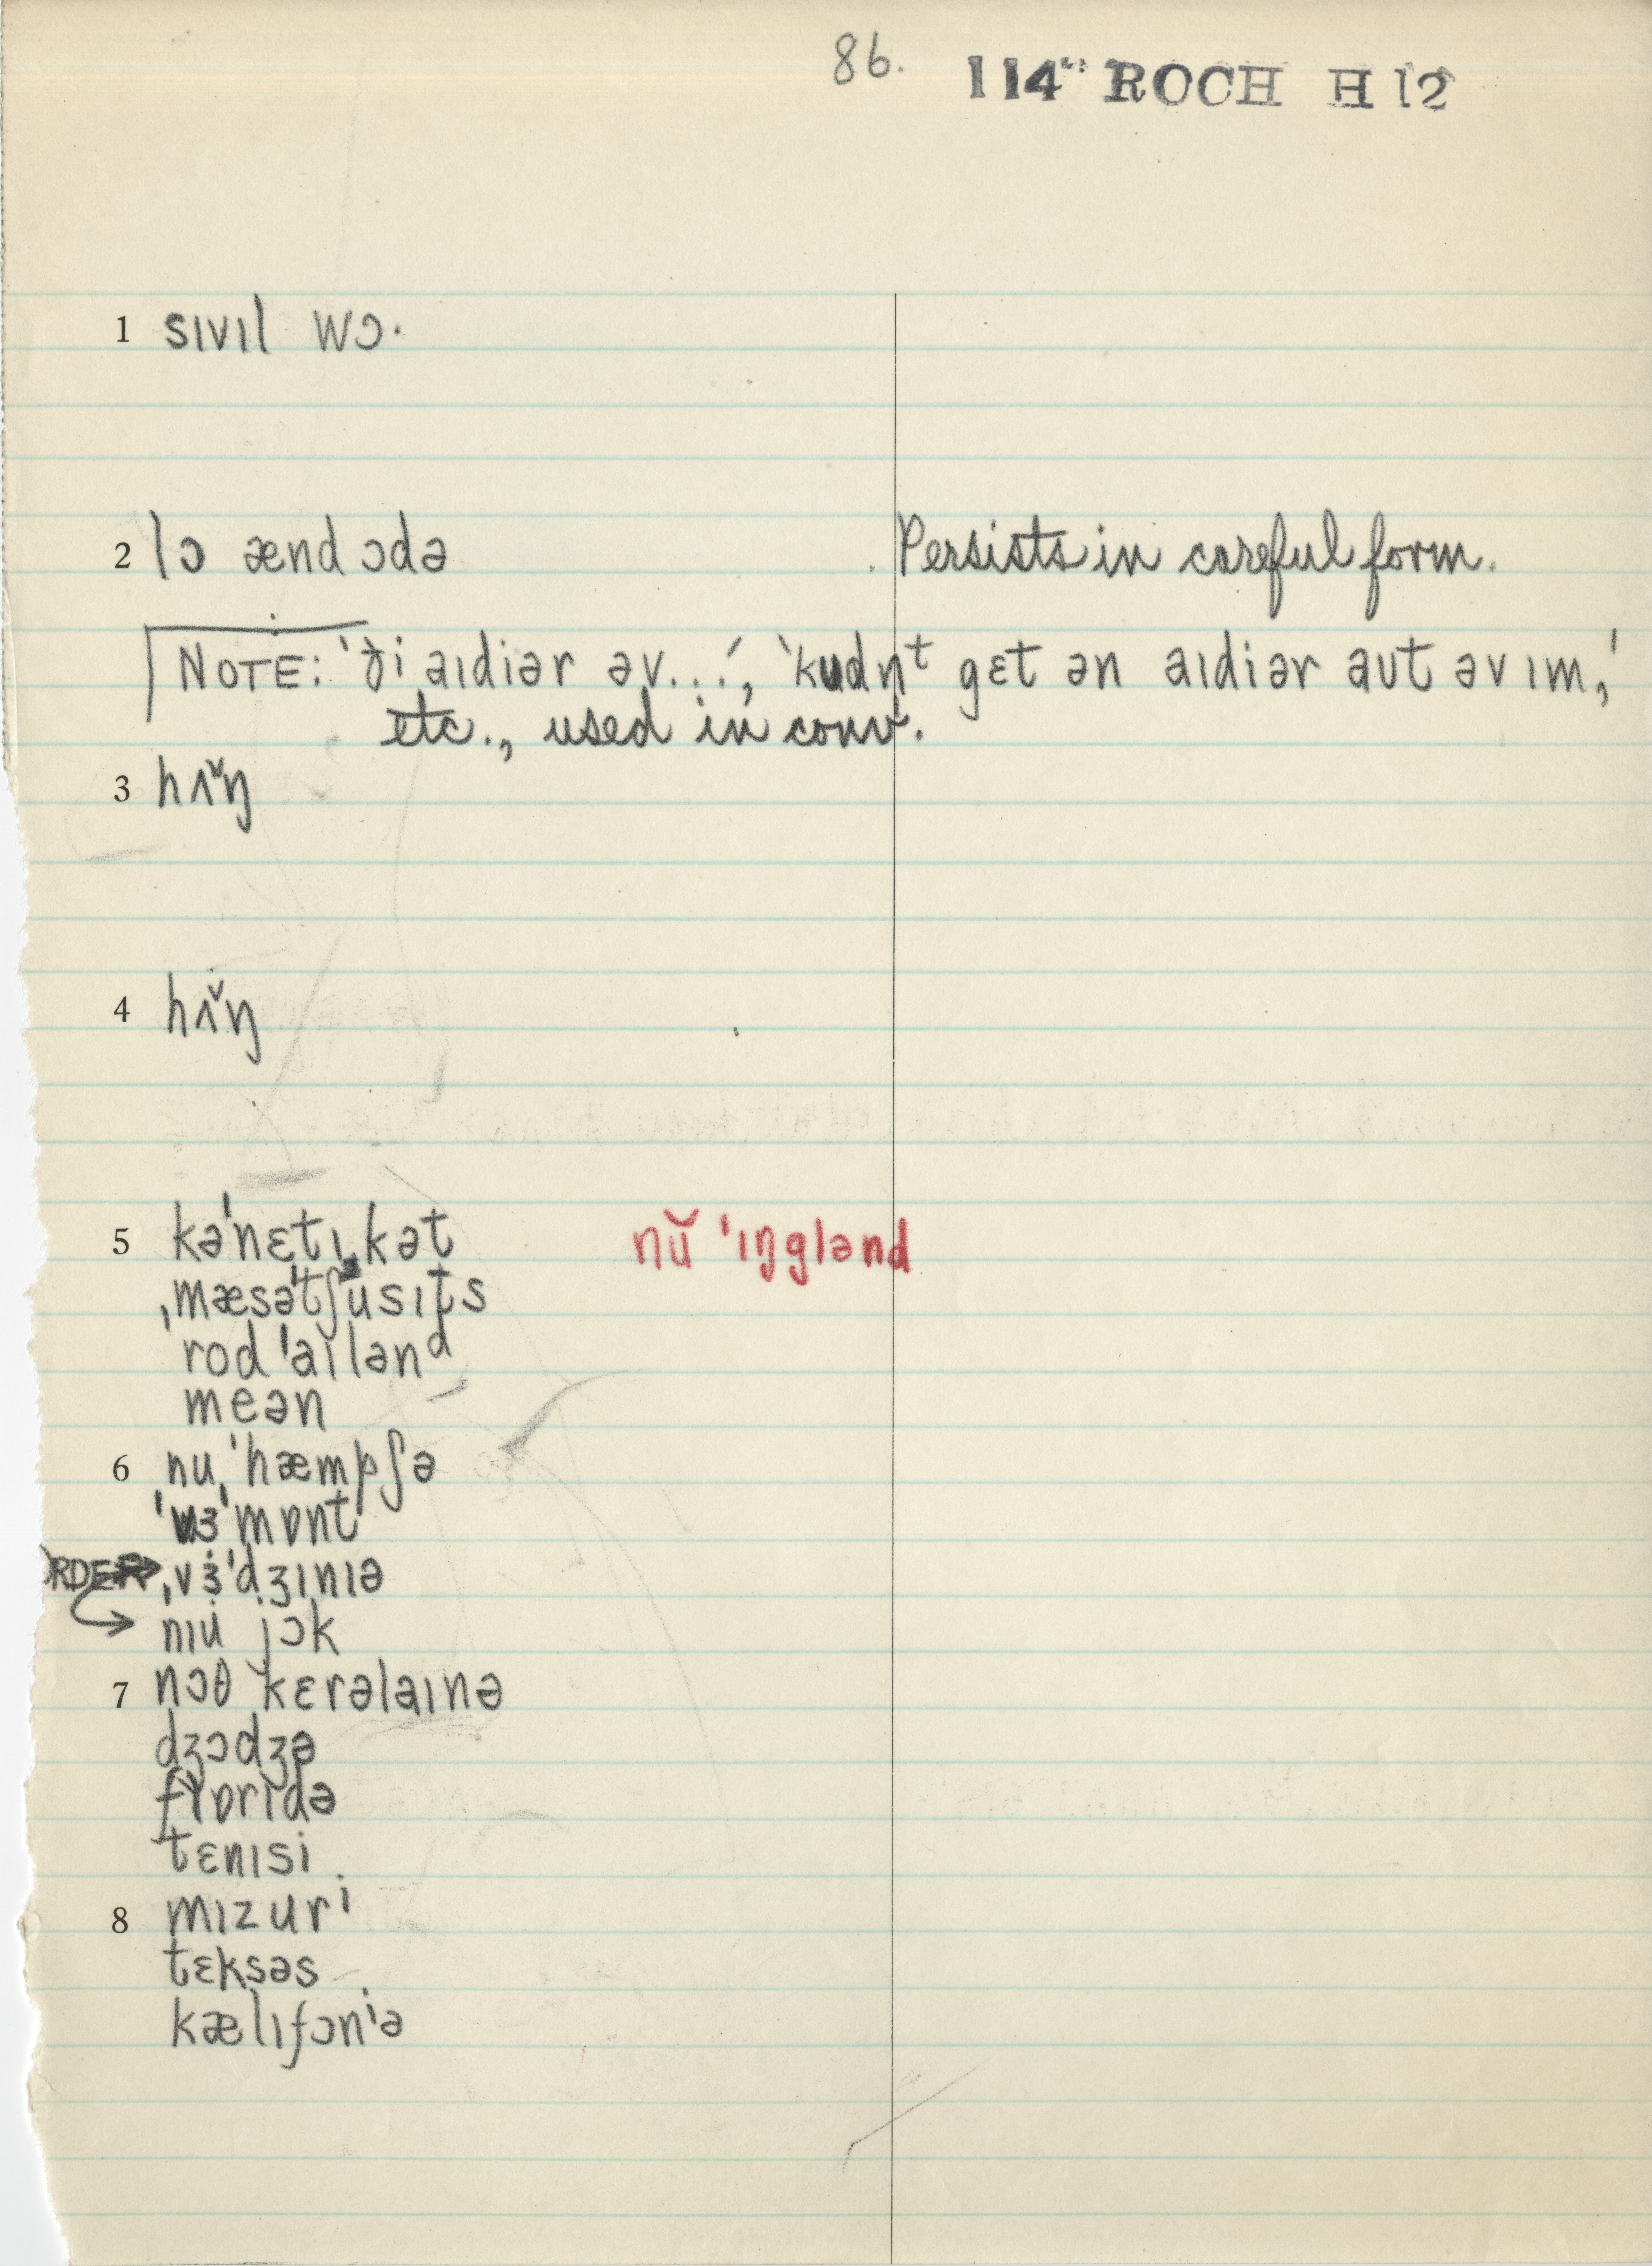 86. 114" ROCH H 12
1 sɪvɪl wɔ·
2 lɔ ænd ɔdə Persists in careful form.
NOTE: 'ði aɪdiər əv...', 'kudn̩ᵗ gɛt ən aɪdiər aut əv ɪm,'
etc., used in conv.
3 hʌ̌ŋ
4 hʌ̌ŋ
5 kə'nɛtɪˌkət nŭ 'ɪŋglənd
ˌmæsə'tʃusɪts
rod 'aɪlənᵈ
meən
6 nu ˌ'hæmpʃə
'vɜ'mɒnt
ORDER → ˌvɜ'dʒɪnɪə
nɪu jɔk
7 nɔθ kɛrəlaɪnə
dʒɔdʒə
flɒrɪdə
tɛnɪsi
8 mɪzurⁱ
tɛksəs
kælɪfɔnⁱə